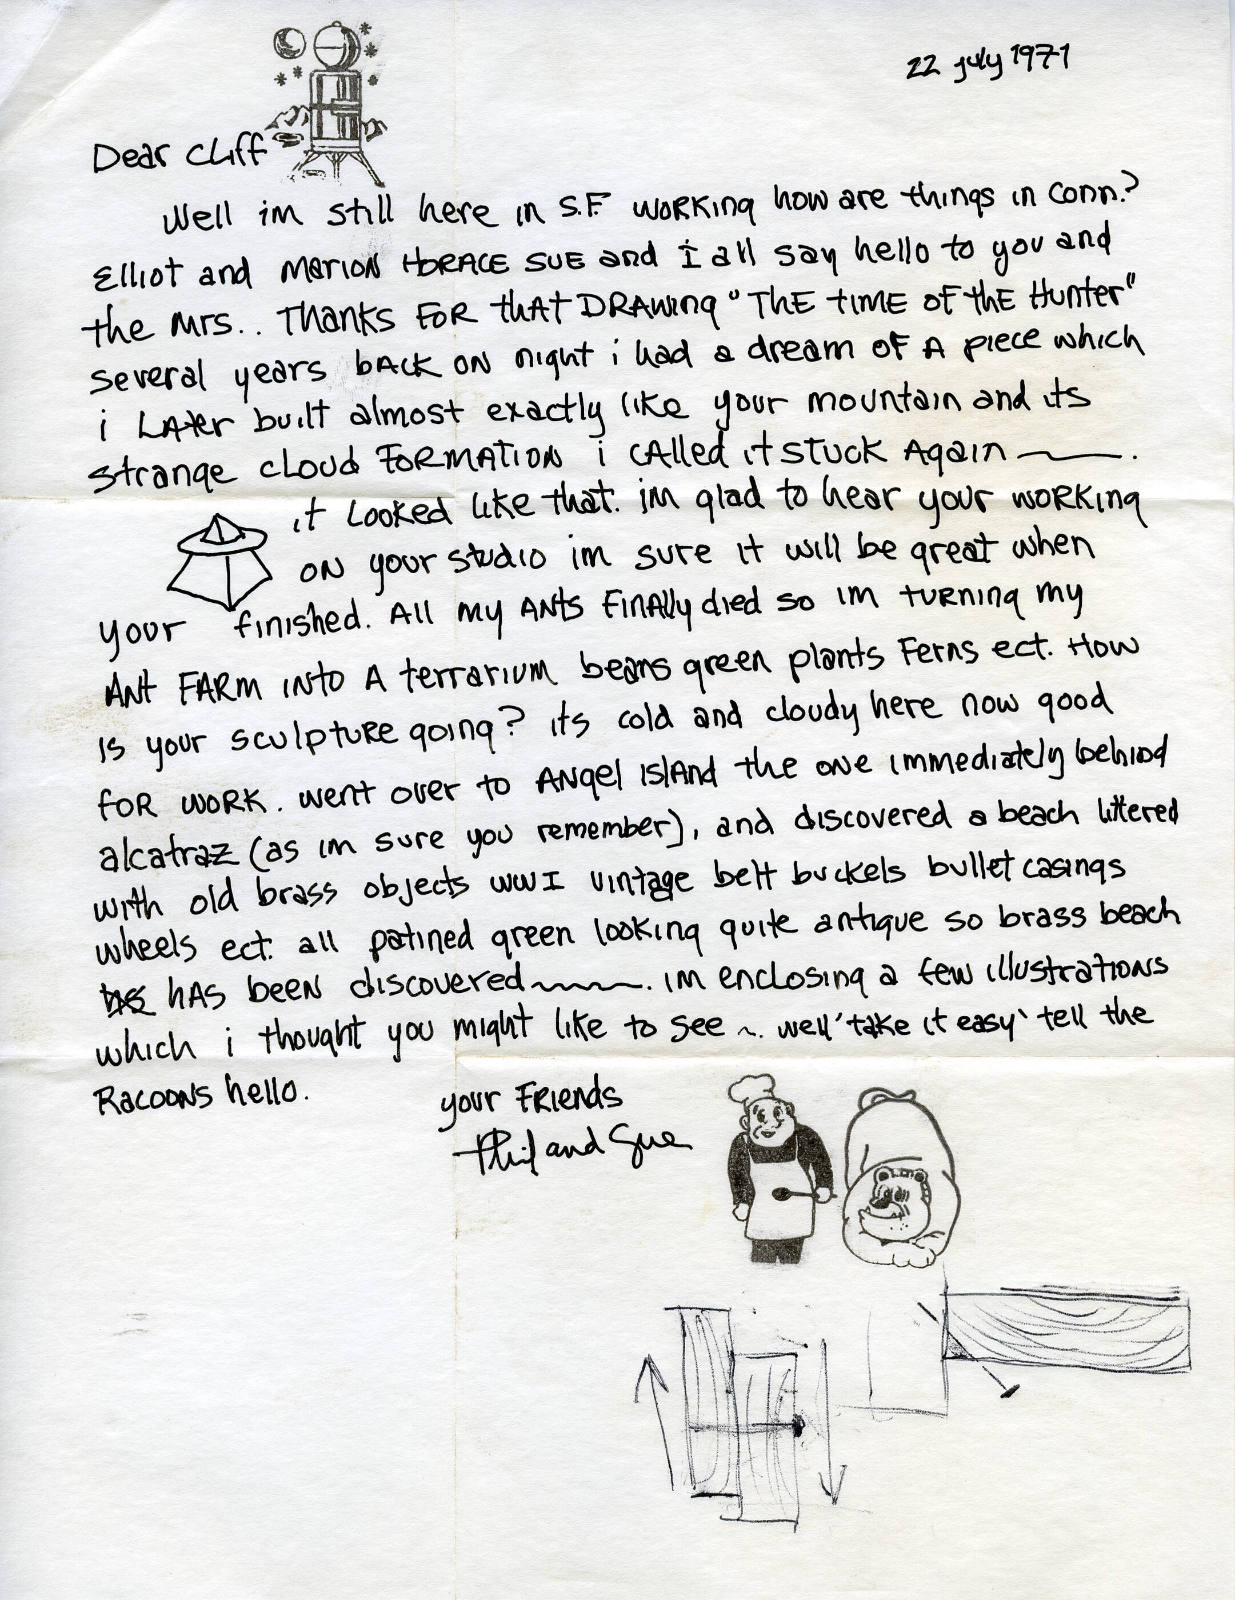 22 july 1971
Dear Cliff
Well im still here in S.F. working how are things in conn.?
Elliot and Marion Horace Sue and i all say hello to you and
the Mrs.. Thanks for that drawing "The Time of the Hunter"
several years back on night i had a dream of a piece which
i later built almost exactly like your mountain and its
strange cloud formation i called it stuck again ——.
it looked like that. im glad to hear your working
on your studio im sure it will be great when
your finished. All my ants finally died so im turning my
ant farm into a terrarium beans green plants ferns ect. How
is your sculpture going? its cold and cloudy here now good
for work. went over to Angel Island the one immediately behind
alcatraz (as im sure you remember), and discovered a beach littered
with old brass objects WWI vintage belt buckels bullet casings
wheels ect. all patined green looking quite antique so brass beach
has been discovered ~~~~. im enclosing a few illustrations
which i thought you might like to see ~. well 'take it easy' tell the
Racoons hello.
your Friends
Phil and Sue